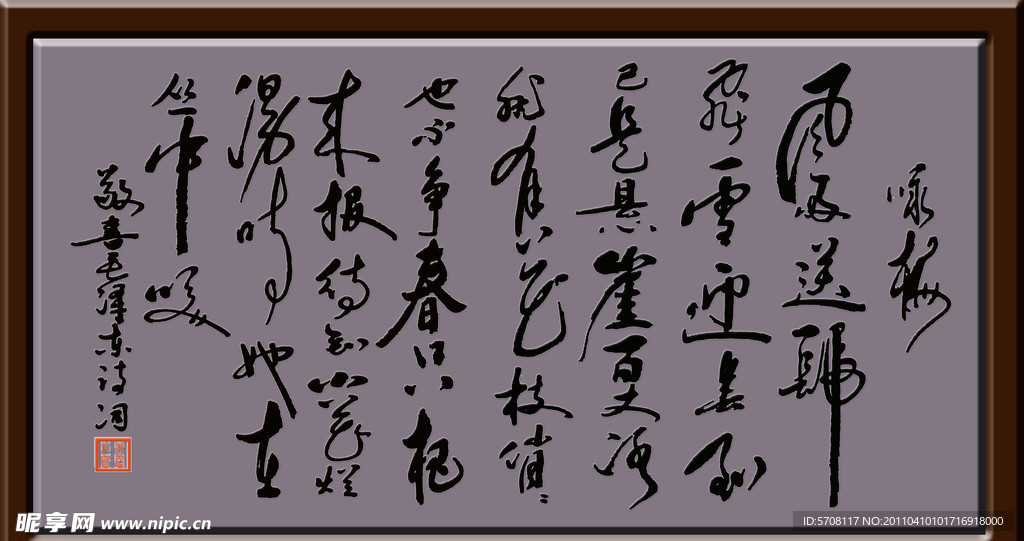 咏梅
风雨送歸
飛雪迎春到
已是悬崖百丈冰
犹有花枝俏々
也不争春只把
来报待到山花烂
漫时她在
丛中笑
敬书毛泽东诗词
昵享网 www.nipic.cn
ID:5708117 NO:20110410101716918000